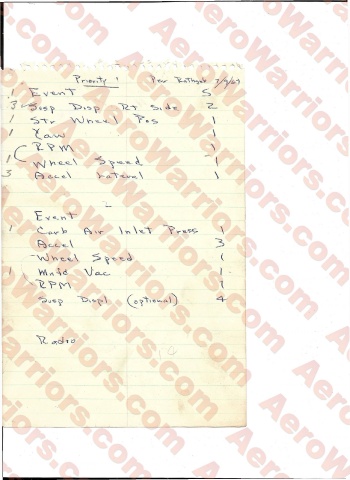 Priority 1 Pear Rathgeb 7/9/69
1 Event 5
3 Susp Disp Rt Side 2
1 Str Wheel Pos 1
1 Yaw 1
RPM 1
1 Wheel Speed 1
3 Accel Lateral 1
Event
1 Carb Air Inlet Press 1
Accel 3
Wheel Speed 1
1 Mnfd Vac 1
RPM 1
Susp Displ (optional) 4
Radio
AeroWarriors.com